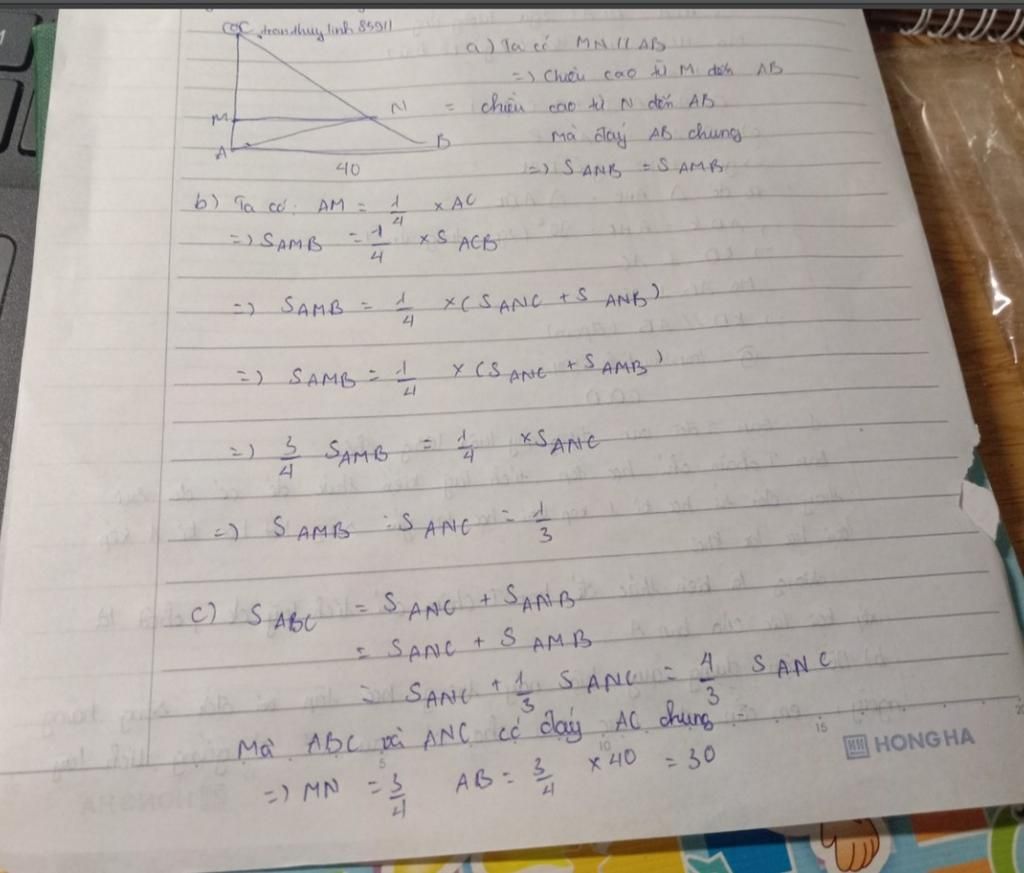 C tranthuylinh 85911
M
N
A
B
40
a) Ta có MN // AB
=) Chiều cao từ M đến AB
= chiều cao từ N đến AB
Mà đáy AB chung
=) S ANB = S AMB
b) Ta có: AM = 1/4 x AC
=) S AMB = 1/4 x S ACB
=) S AMB = 1/4 x (S ANC + S ANB)
=) S AMB = 1/4 x (S ANC + S AMB)
=) 3/4 S AMB = 1/4 x S ANC
=) S AMB : S ANC = 1/3
c) S ABC = S ANC + S ANB
= S ANC + S AMB
= S ANC + 1/3 S ANC = 4/3 S ANC
Mà ABC và ANC có đáy AC chung
=) MN = 3/4 AB = 3/4 x 40 = 30
5 10 15 20
HH HONG HA